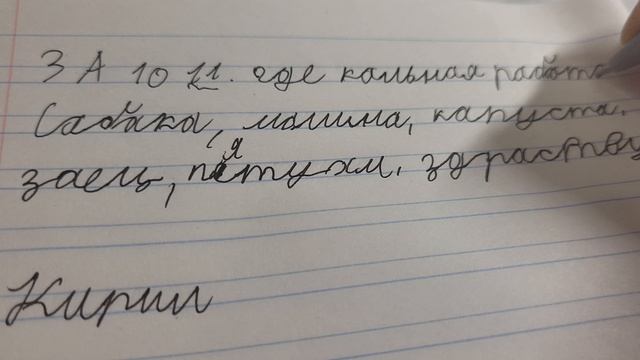 3 А 10 11. где кальная работа
Сабака, машина, капуста.
заец, пятухи. здраству
Кирил